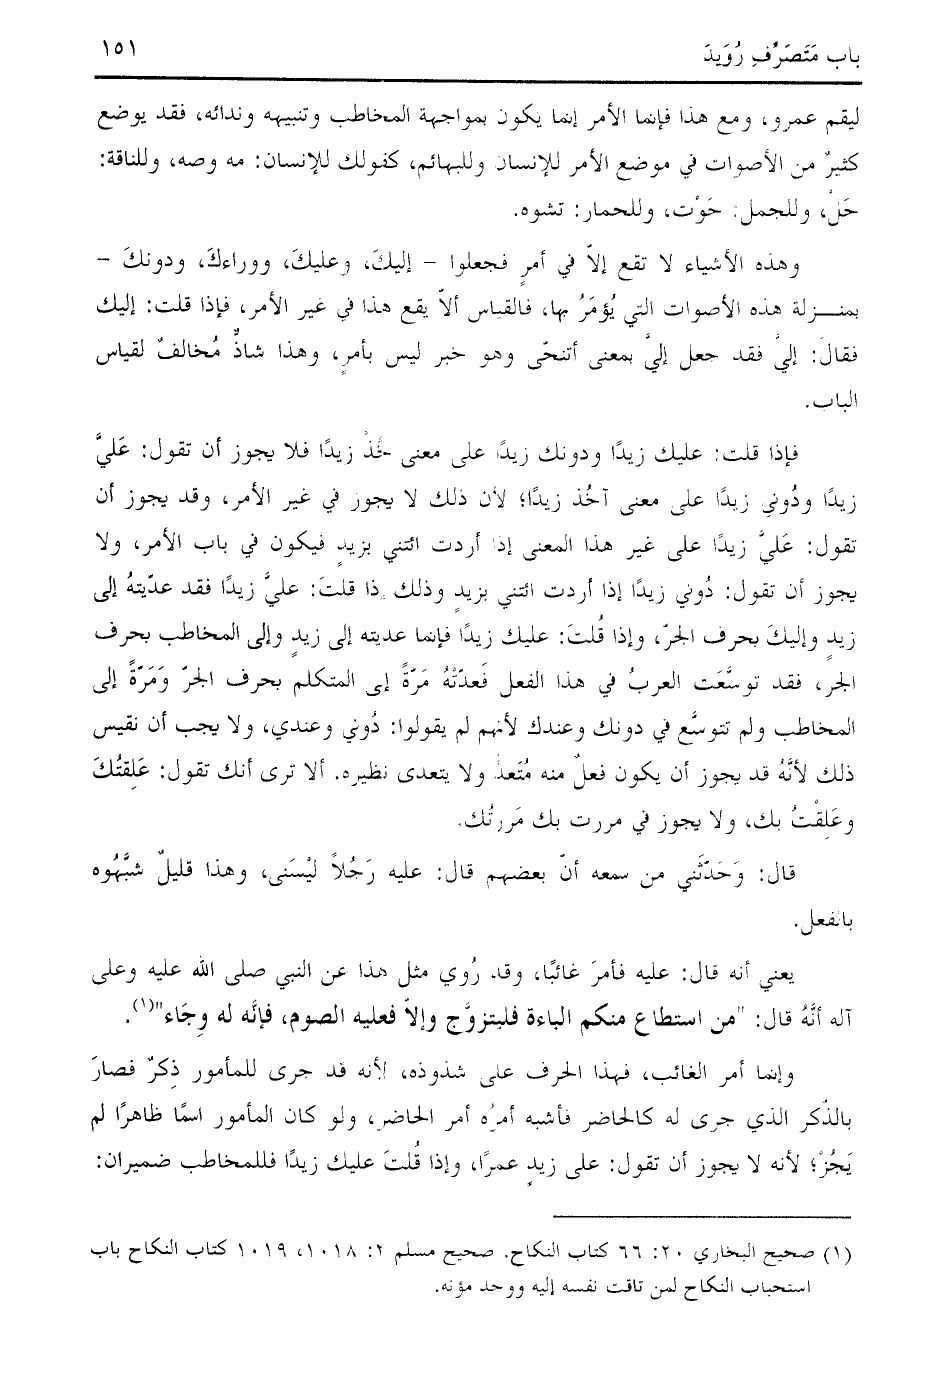 باب مَتَصَرَّفِ رُوَيدَ
١٥١
ليقم عمرو، ومع هذا فإنما الأمر إنما يكون بمواجهة المخاطب وتنبيهه وندائه، فقد يوضع
كثيرٌ من الأصوات في موضع الأمر للإنسان وللبهائم، كقولك للإنسان: مه وصه، وللناقة:
حَلْ، وللجمل: حَوْت، وللحمار: تشوه.
وهذه الأشياء لا تقع إلاّ في أمرٍ فجعلوا – إليكَ، وعليكَ، ووراءكَ، ودونكَ –
بمنـزلة هذه الأصوات التي يُؤمَرُ بها، فالقياس ألاّ يقع هذا في غير الأمر، فإذا قلت: إليك
فقالَ: إليَّ فقد جعل إليَّ بمعنى أتنحّى وهو خبر ليس بأمرٍ، وهذا شاذٌّ مُخالفٌ لقياس
الباب.
فإذا قلت: عليك زيدًا ودونك زيدًا على معنى خُذْ زيدًا فلا يجوز أن تقول: عَليَّ
زيدًا ودُوني زيدًا على معنى آخُذ زيدًا؛ لأن ذلك لا يجوز في غير الأمر، وقد يجوز أن
تقول: عَليَّ زيدًا على غير هذا المعنى إذا أردت ائتني بزيدٍ فيكون في باب الأمر، ولا
يجوز أن تقول: دُوني زيدًا إذا أردت ائتني بزيدٍ وذلك إذا قلتَ: عليَّ زيدًا فقد عدّيتهُ إلى
زيدٍ وإليكَ بحرف الجرّ، وإذا قُلتَ: عليك زيدًا فإنما عديته إلى زيدٍ وإلى المخاطب بحرف
الجر، فقد توسَّعَت العربُ في هذا الفعل فَعدّتْهُ مَرّةً إلى المتكلم بحرف الجرّ وَمَرّةً إلى
المخاطب ولم تتوسَّع في دونك وعندك لأنهم لم يقولوا: دُوني وعندي، ولا يجب أن نقيس
ذلك لأنَّهُ قد يجوز أن يكون فعلٌ منه مُتَعدٍّ ولا يتعدى نظيره. ألا ترى أنك تقول: عَلِقتُكَ
وعَلِقْتُ بك، ولا يجوز في مررت بك مَررتُك.
قال: وَحَدّثَني من سمعه أنّ بعضهم قال: عليه رَجُلاً ليْسَنى، وهذا قليلٌ شبَّهُوه
بالفعل.
يعني أنه قال: عليه فأمرَ غائبًا، وقد رُوي مثل هذا عن النبي صلى الله عليه وعلى
آله أنَّهُ قال: "من استطاع منكم الباءة فليتزوَّج وإلاّ فعليه الصوم، فإنَّه له وِجَاء"(١).
وإنما أمر الغائب، فهذا الحرف على شذوذه، لأنه قد جرى للمأمور ذِكرٌ فصارَ
بالذّكر الذي جرى له كالحاضر فأشبه أمرُه أمر الحاضر، ولو كان المأمور اسمًا ظاهرًا لم
يَجُزْ؛ لأنه لا يجوز أن تقول: على زيدٍ عمرًا، وإذا قُلتَ عليك زيدًا فللمخاطب ضميران:
(١) صحيح البخاري ٢٠: ٦٦ كتاب النكاح. صحيح مسلم ٢: ١٠١٨، ١٠١٩ كتاب النكاح باب
استحباب النكاح لمن تاقت نفسه إليه ووجد مؤنه.